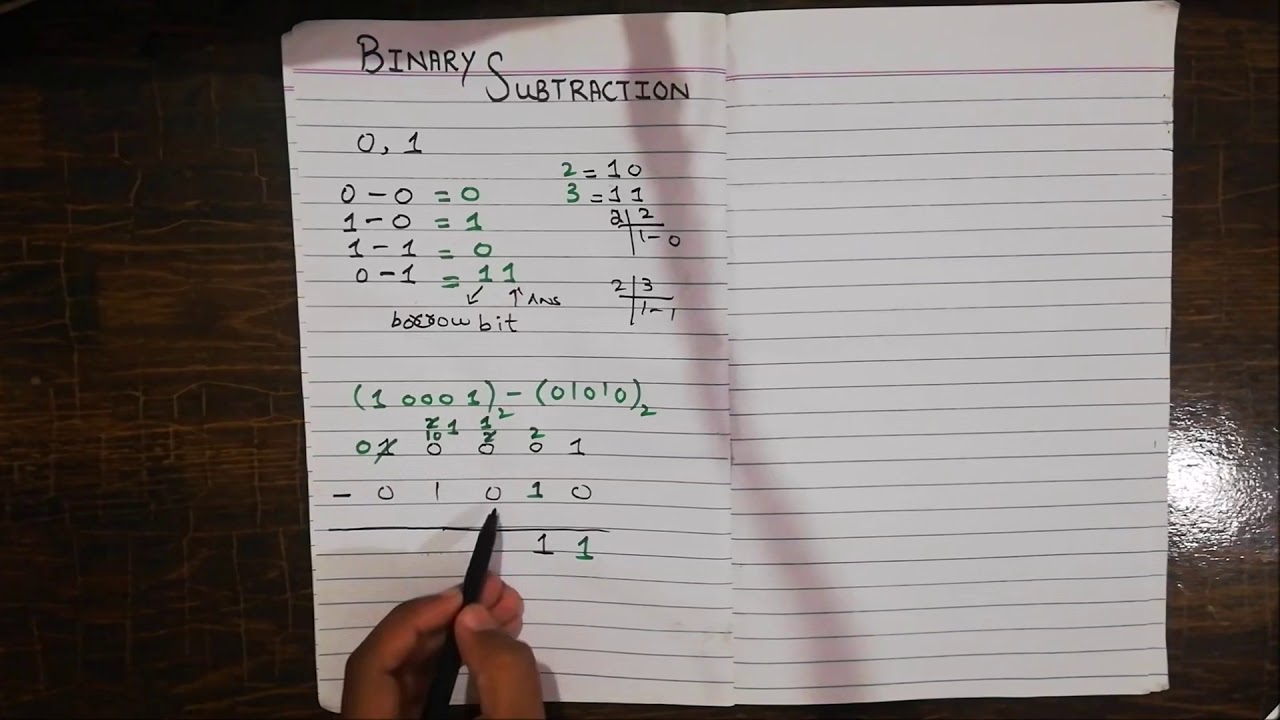 BINARY
SUBTRACTION
0, 1
0 - 0 = 0
1 - 0 = 1
1 - 1 = 0
0 - 1 = 1 1
Ans
borrow bit
2 = 1 0
3 = 1 1
2 2
1 - 0
2 3
1 - 1
(1 0 0 0 1)2 - (0 1 0 1 0)2
2 1 1
10 2 2
0 1 0 0 0 1
- 0 1 0 1 0
1 1